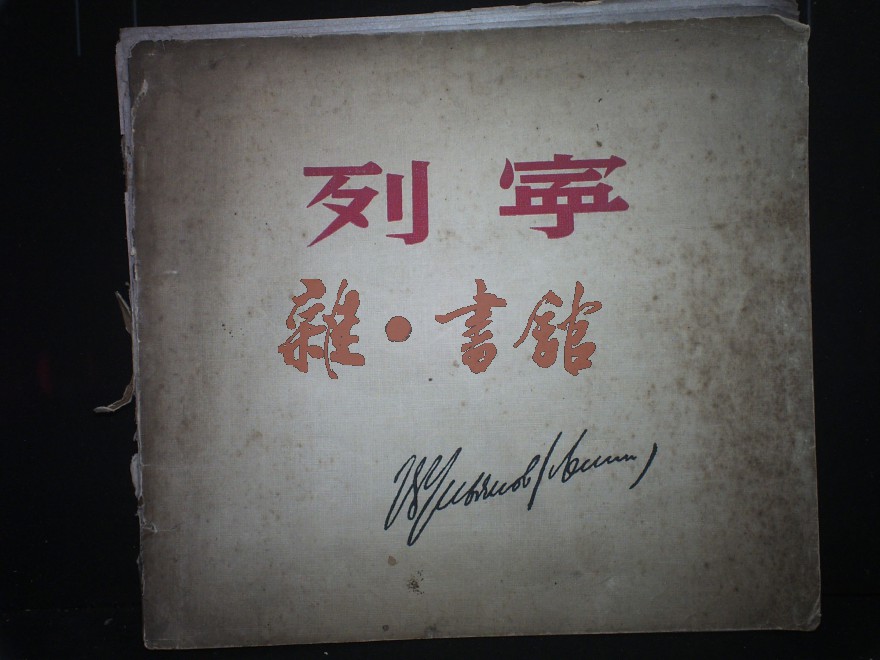 列寧
雜·書館
В Ульянов (Ленин)